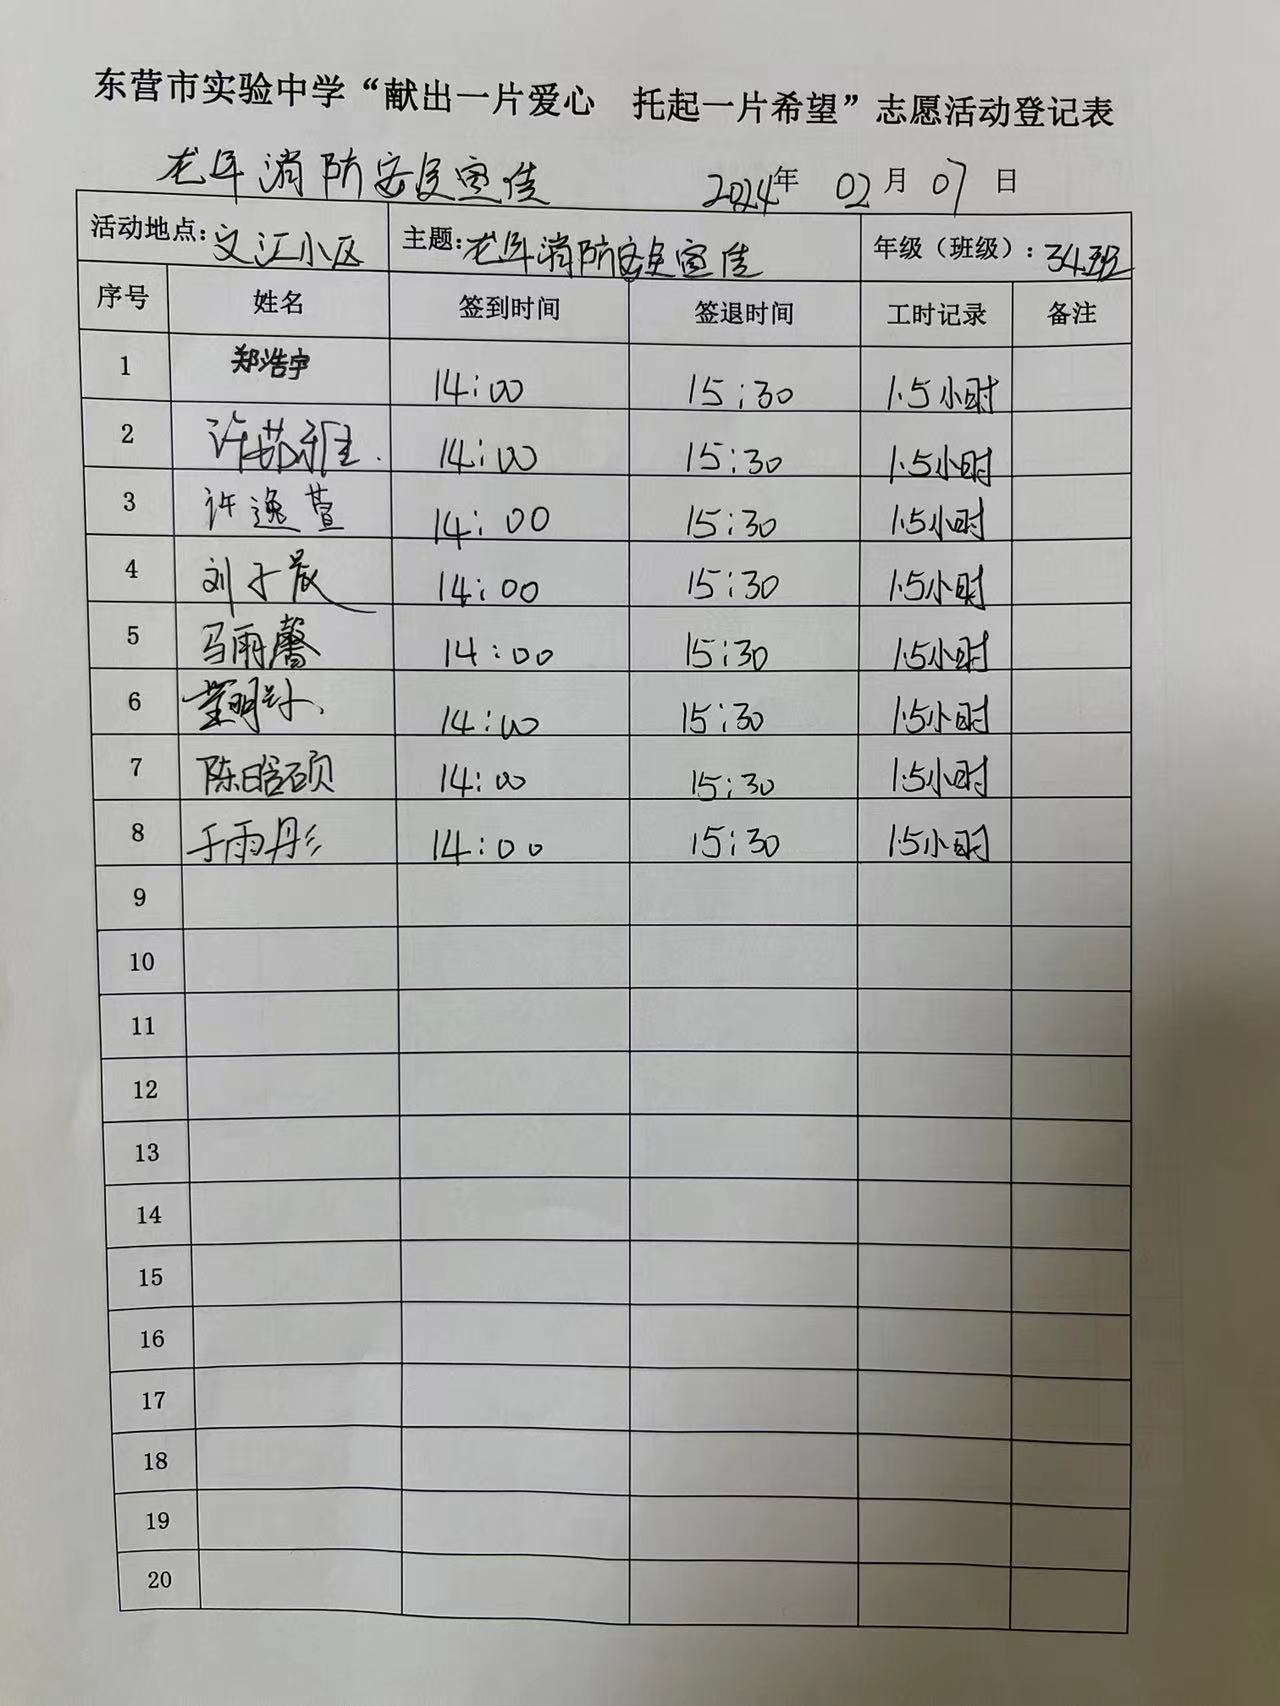 东营市实验中学“献出一片爱心 托起一片希望”志愿活动登记表
龙年消防安全宣传 2024年 02月07日
活动地点：文江小区 主题：龙年消防安全宣传 年级（班级）：34班
序号 姓名 签到时间 签退时间 工时记录 备注
1 郑浩宇 14:00 15:30 1.5小时
2 许茹雅. 14:00 15:30 1.5小时
3 许逸萱 14:00 15:30 1.5小时
4 刘子宸 14:00 15:30 1.5小时
5 马雨馨 14:00 15:30 1.5小时
6 14:00 15:30 1.5小时
7 陈晗硕 14:00 15:30 1.5小时
8 于雨彤 14:00 15:30 1.5小时
9
10
11
12
13
14
15
16
17
18
19
20